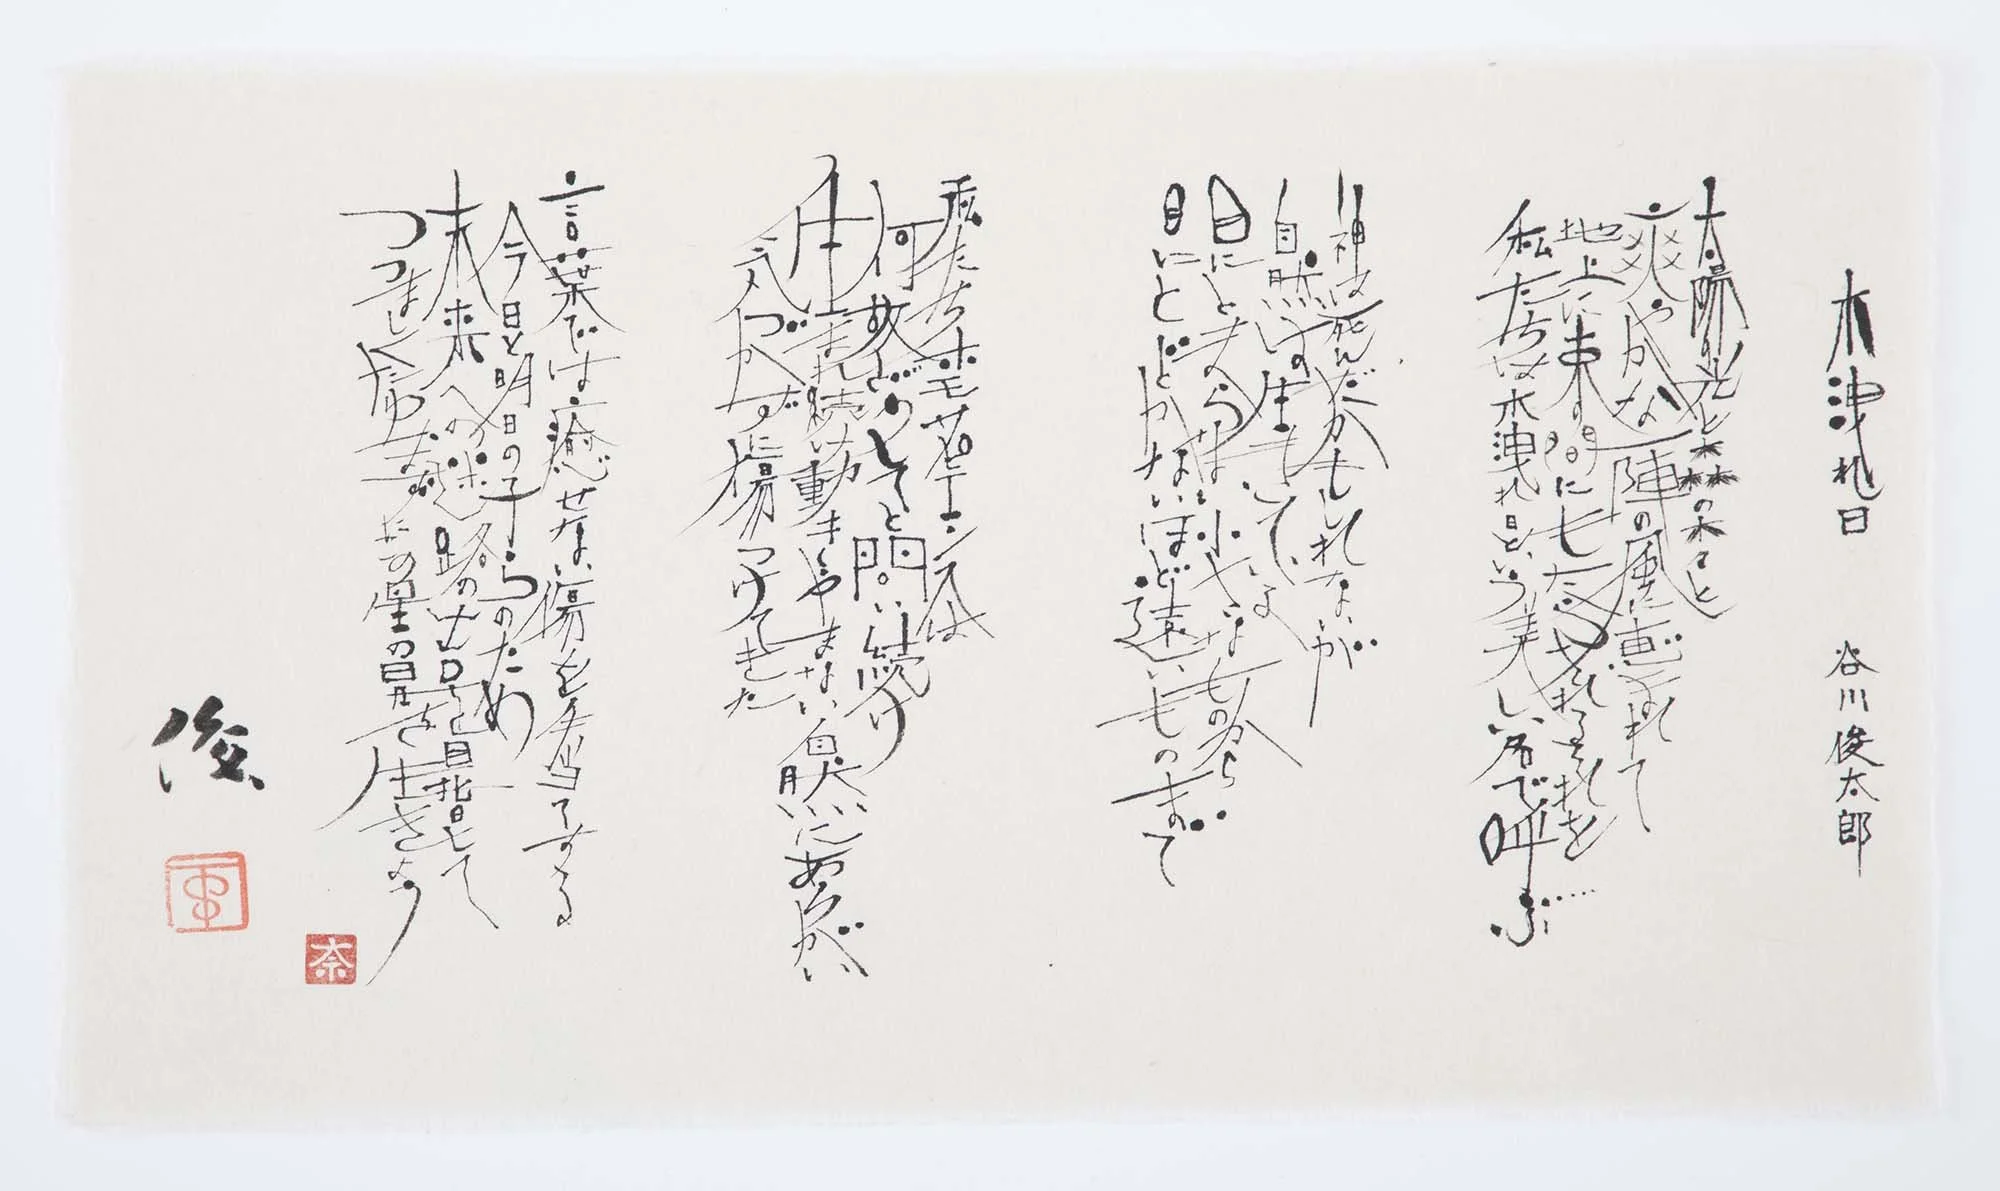 木洩れ日 谷川俊太郎
太陽の光と森の木々と
爽やかな一陣の風に恵まれて
地上に束の間にもたらされるそれを
私たちは木洩れ日という美しい名で呼ぶ……
神は死んだかもしれないが
自然は生
目にとまらぬ小さなものから
目にとどかないほど遠いものまで
私たちホモサピエンスは
何故どうしてと問い続け
生まれ続け動きやまない自然にあらがい
気づかずに傷つけてきた
言葉では癒せない傷を手当てする
今日と明日の子らのため
未来への迷路の出口を目指して
つつましく この星の を生きよう
俊
奈